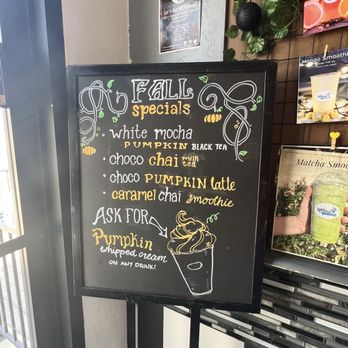 FALL
specials
• white mocha
PUMPKIN BLACK TEA
• choco chai milk tea
• choco PUMPKIN latte
• caramel chai smoothie
ASK FOR
Pumpkin
whipped cream
ON ANY DRINK!
Mango Smoothie
Matcha Smoo